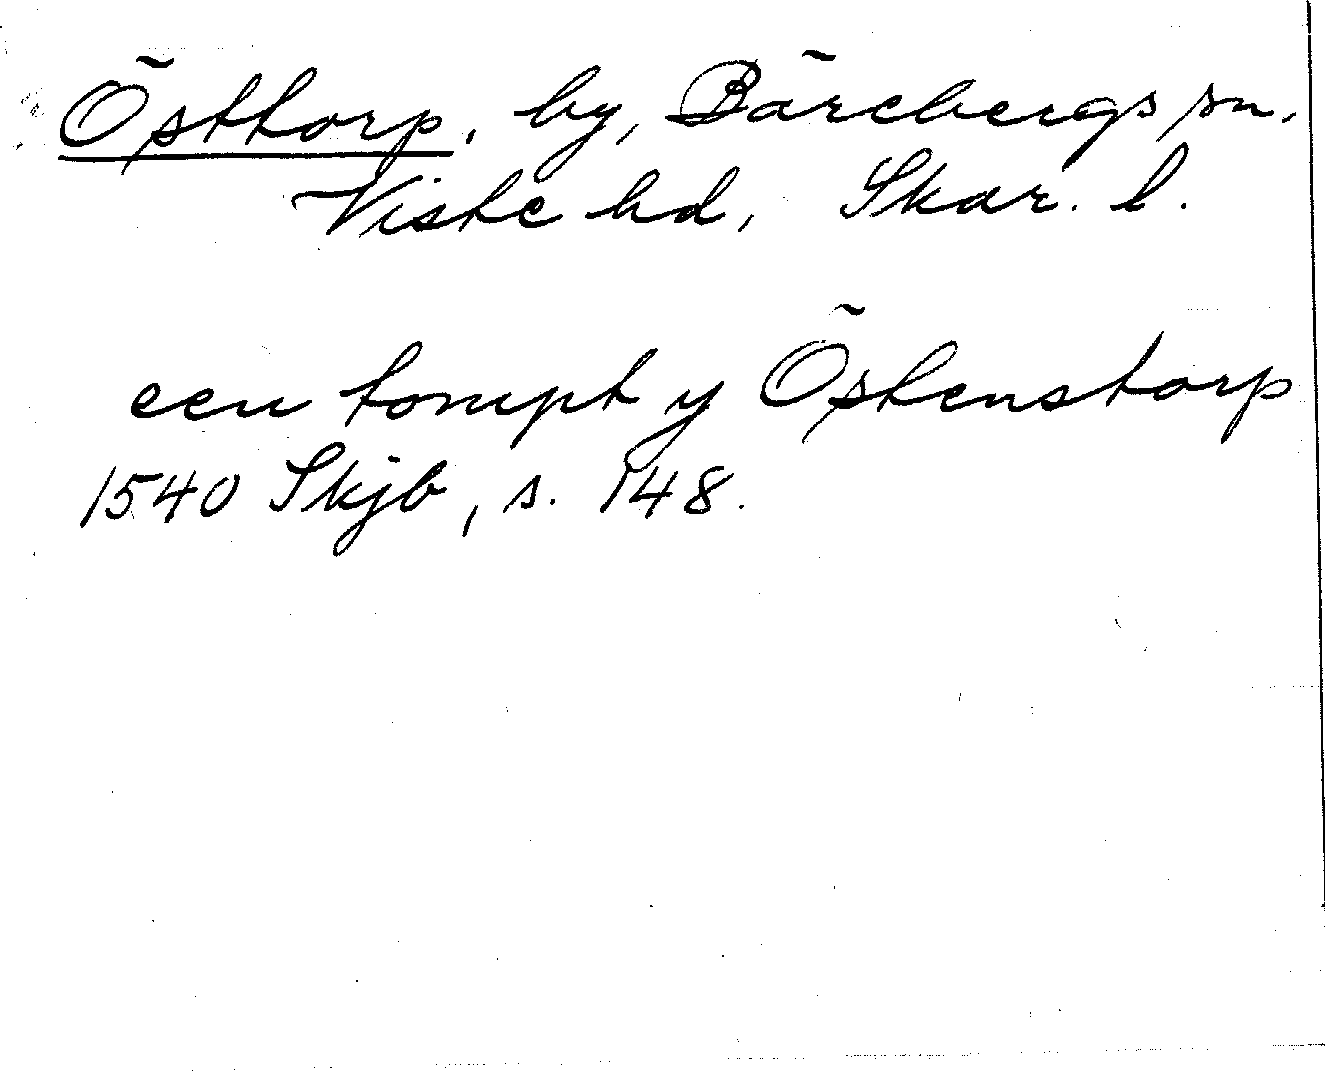 Östtorp, by, Bärebergs sn,
Viste hd, Skar. l.
een tompt y Östenstorp
1540 Skjb, s. 148.